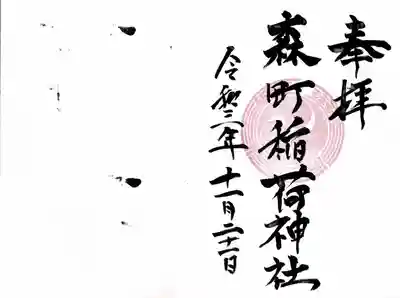 奉拝
森町稲荷神社
令和三年十一月二十二日